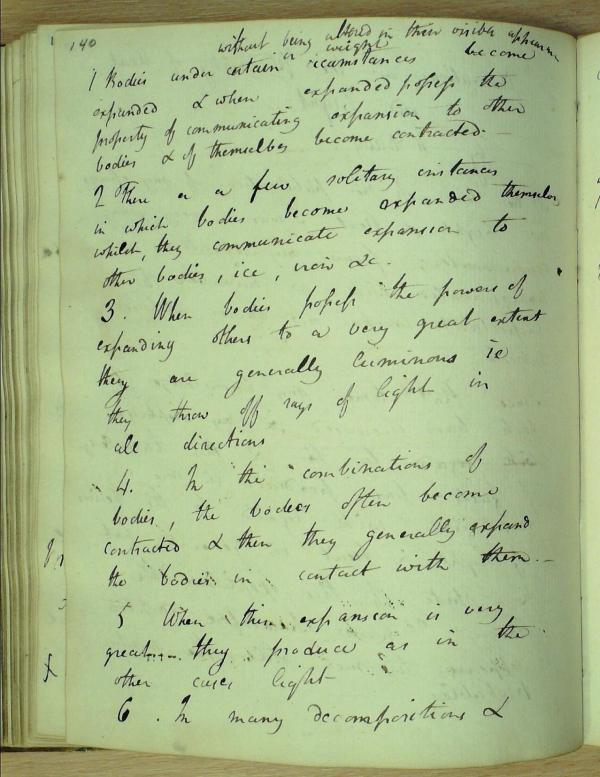 140
without being altered in their visible appearance
or weight
1 Bodies under certain circumstances become
expanded & when expanded possess the
property of communicating expansion to other
bodies & of themselves become contracted. —
2 There a a few solitary instances
in which bodies become expanded themselves
whilst they communicate expansion to
other bodies, ice, iron &c.
3. When bodies possess the powers of
expanding others to a very great extent
they are generally luminous ie
they throw off rays of light in
all directions
4. In the combinations of
bodies, the bodies often become
contracted & then they generally expand
the bodies in contact with them. —
5 When this expansion is very
great they produce as in the
other cases light
6. In many decompositions &